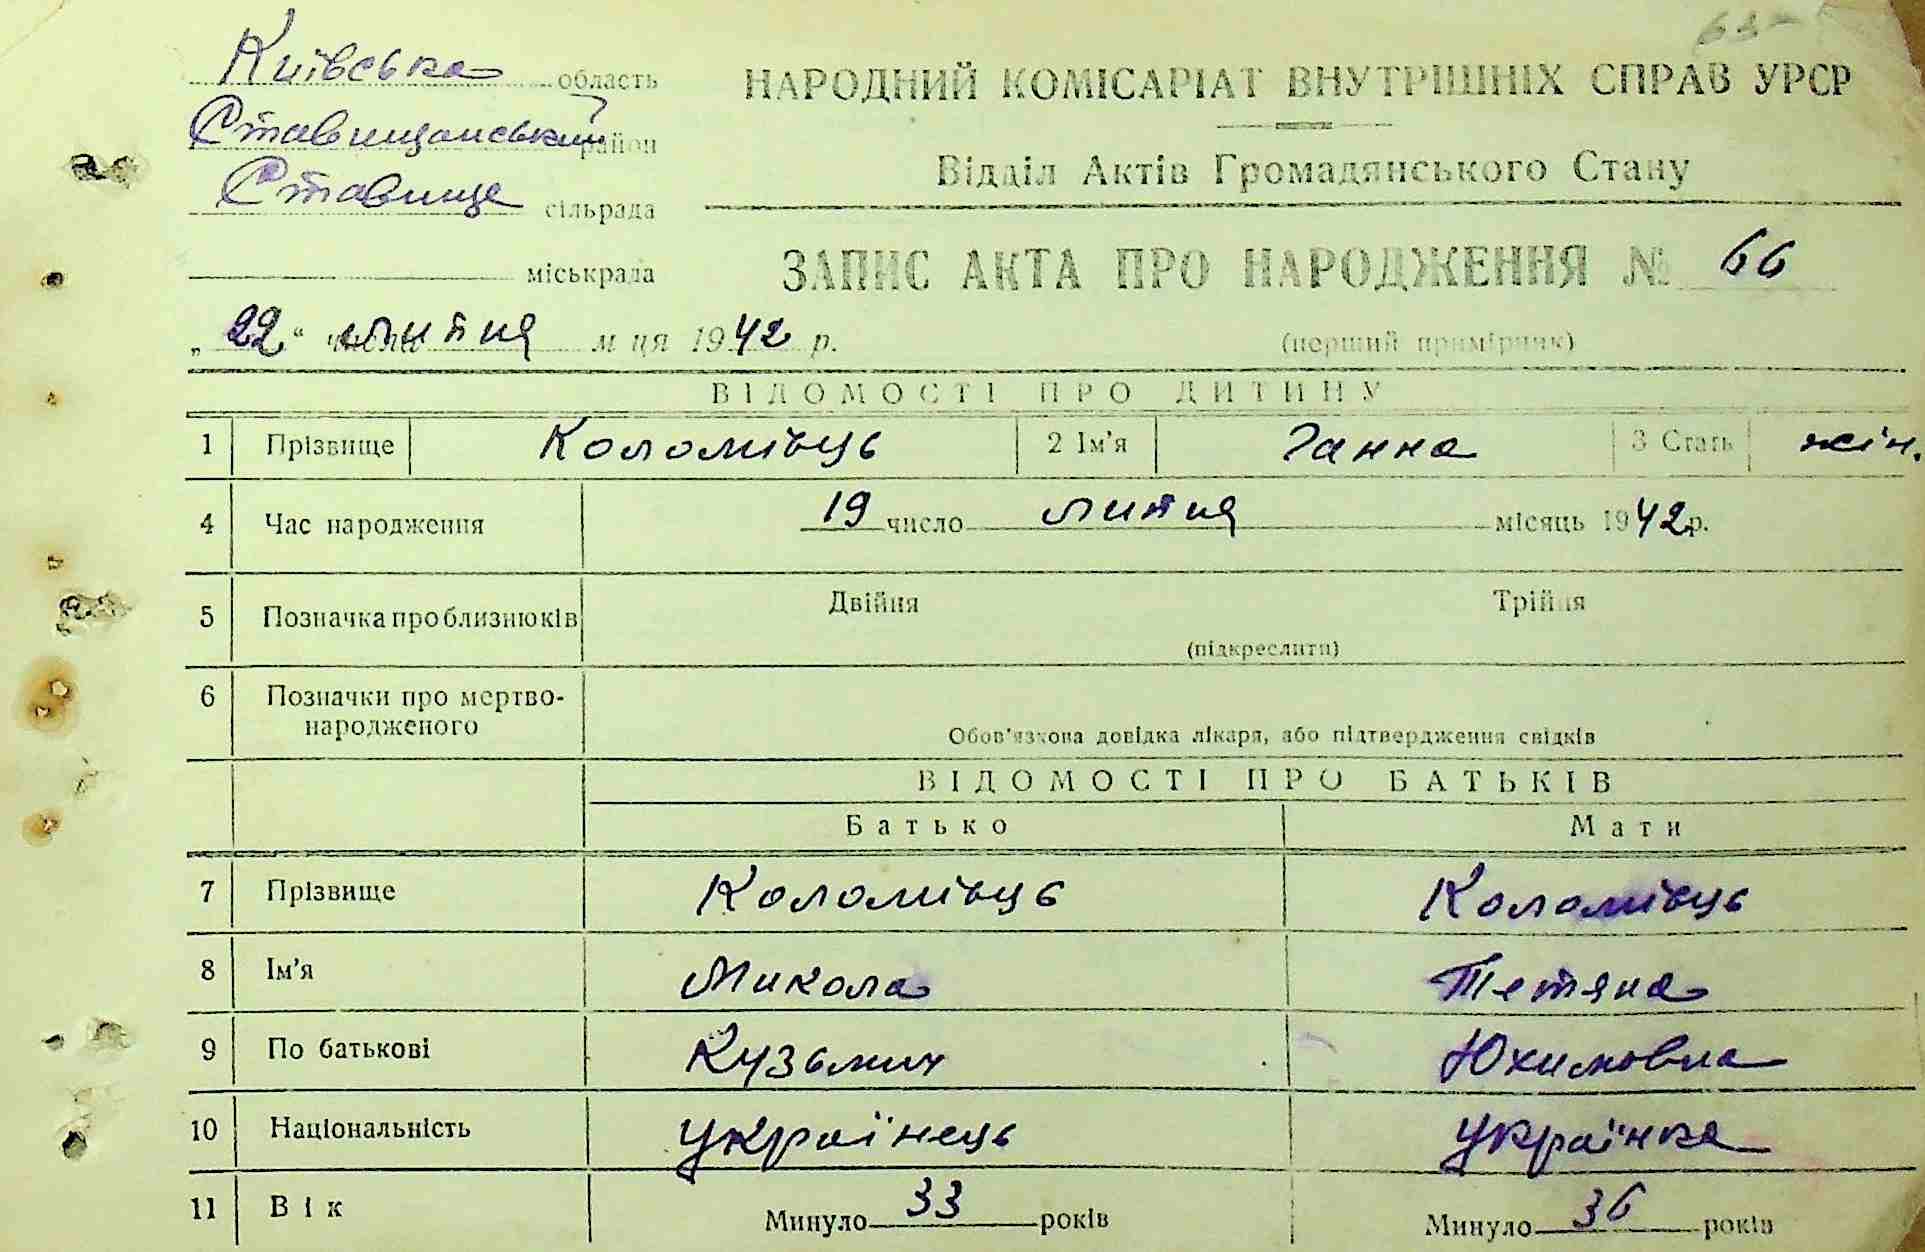 63
Київська область
Ставищанський район
Ставище сільрада
міськрада
НАРОДНИЙ КОМІСАРІАТ ВНУТРІШНІХ СПРАВ УРСР
Відділ Актів Громадянського Стану
ЗАПИС АКТА ПРО НАРОДЖЕННЯ № 66
„22“ числа липня м ця 1942 р.
(перший примірник)
ВІДОМОСТІ ПРО ДИТИНУ
1 Прізвище Коломієць 2 Ім'я Ганна 3 Стать жін.
4 Час народження 19 число липня місяць 1942р.
5 Позначка про близнюків Двійня Трійня
(підкреслити)
6 Позначки про мертво-
народженого
Обов'язкова довідка лікаря, або підтвердження свідків
ВІДОМОСТІ ПРО БАТЬКІВ
Батько Мати
7 Прізвище Коломієць Коломієць
8 Ім'я Микола Тетяна
9 По батькові Кузьмич Юхимовна
10 Національність українець українка
11 Вік Минуло 33 років Минуло 36 років